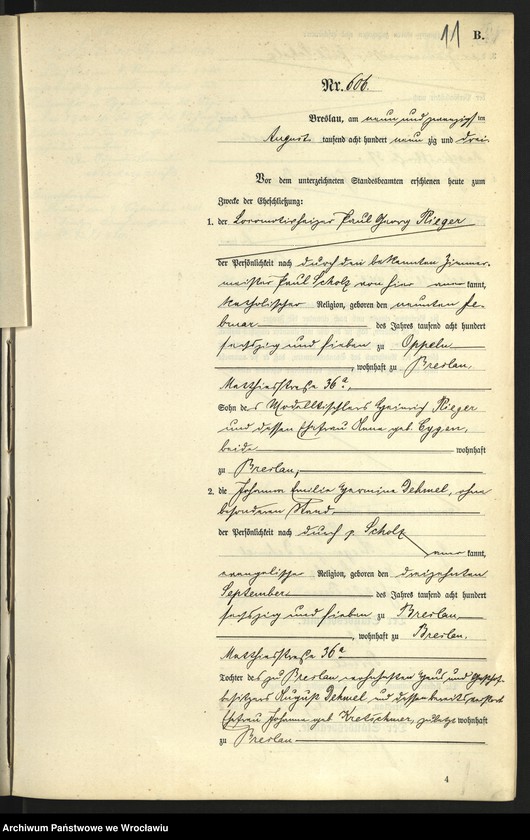 11 B.
Nr. 606.
Breslau, am neun und zwanzigsten
August tausend acht hundert neun zig und drei
Vor dem unterzeichneten Standesbeamten erschienen heute zum
Zwecke der Eheschließung:
1. der Locomotivheizer Paul Georg Rieger
der Persönlichkeit nach durch den bekannten Zimmer-
meister Paul Scholz von hier aner kannt,
katholischer Religion, geboren den neunten Fe-
bruar des Jahres tausend acht hundert
sechszig und sieben zu Oppeln
, wohnhaft zu Breslau,
Matthiasstraße 36a,
Sohn des Modelltischlers Heinrich Rieger
und dessen Ehefrau Anna geb. Cygan,
beide wohnhaft
zu Breslau,
2. die Johanna Emilie Hermine Dehmel, ohne
besonderen Stand,
der Persönlichkeit nach durch p. Scholz
aner kannt,
evangelischer Religion, geboren den dreizehnten
September des Jahres tausend acht hundert
sechszig und sieben zu Breslau
, wohnhaft zu Breslau,
Matthiasstraße 36a
Tochter des zu Breslau wohnhaften Haus und
besitzers August Dehmel und dessen bereits
Ehefrau Johanna geb Kretschmer, zuletzt wohnhaft
zu Breslau
4
Archiwum Państwowe we Wrocławiu